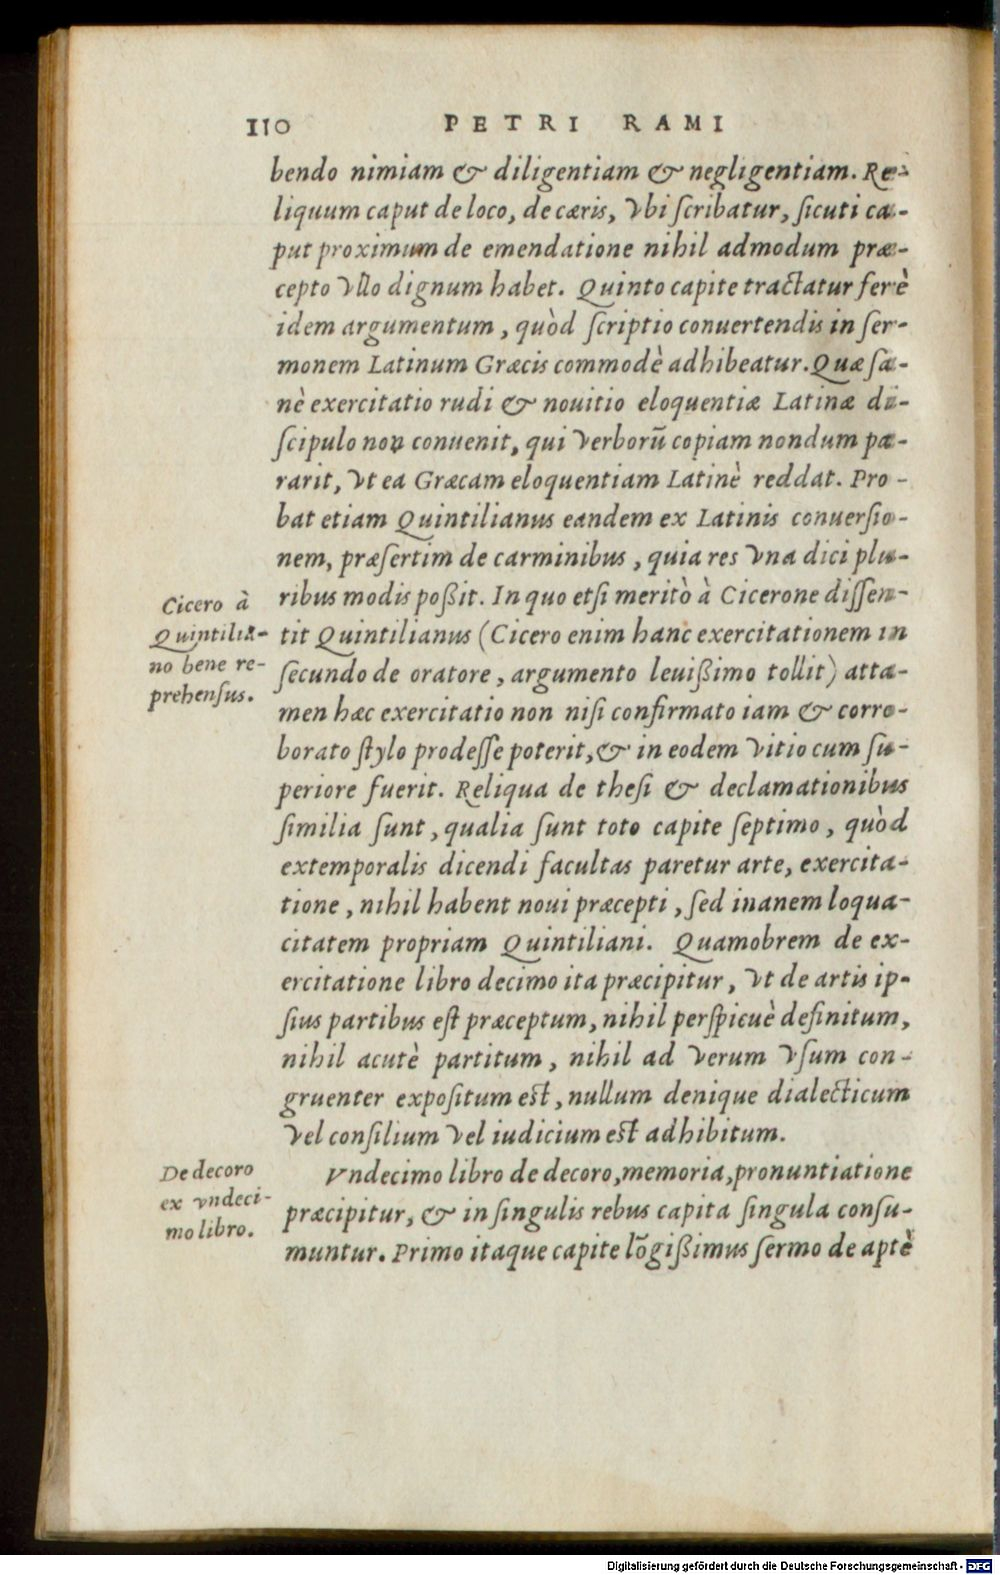 110 PETRI RAMI
bendo nimiam & diligentiam & negligentiam. Re-
liquum caput de loco, de cæris, vbi ſcribatur, ſicuti ca-
put proximum de emendatione nihil admodum præ-
cepto vllo dignum habet. Quinto capite tractatur ferè
idem argumentum, quòd ſcriptio conuertendis in ſer-
monem Latinum Græcis commodè adhibeatur. Quæ ſa-
nè exercitatio rudi & nouitio eloquentiæ Latinæ di-
ſcipulo non conuenit, qui verborū copiam nondum pa-
rarit, vt ea Græcam eloquentiam Latinè reddat. Pro-
bat etiam Quintilianus eandem ex Latinis conuerſio-
nem, præſertim de carminibus, quia res vna dici plu-
ribus modis poßit. In quo etſi meritò à Cicerone diſſen-
tit Quintilianus (Cicero enim hanc exercitationem in
ſecundo de oratore, argumento leuißimo tollit) atta-
men hæc exercitatio non niſi confirmato iam & corro-
borato ſtylo prodeſſe poterit, & in eodem vitio cum ſu-
periore fuerit. Reliqua de theſi & declamationibus
ſimilia ſunt, qualia ſunt toto capite ſeptimo, quòd
extemporalis dicendi facultas paretur arte, exercita-
tione, nihil habent noui præcepti, ſed inanem loqua-
citatem propriam Quintiliani. Quamobrem de ex-
ercitatione libro decimo ita præcipitur, vt de artis ip-
ſius partibus eſt præceptum, nihil perſpicuè definitum,
nihil acutè partitum, nihil ad verum vſum con-
gruenter expoſitum eſt, nullum denique dialecticum
vel conſilium vel iudicium eſt adhibitum.
Vndecimo libro de decoro, memoria, pronuntiatione
præcipitur, & in ſingulis rebus capita ſingula conſu-
muntur. Primo itaque capite lōgißimus ſermo de aptè
Cicero à
Quintilia-
no bene re-
prehenſus.
De decoro
ex vndeci-
mo libro.
Digitalisierung gefördert durch die Deutsche Forschungsgemeinschaft - DFG